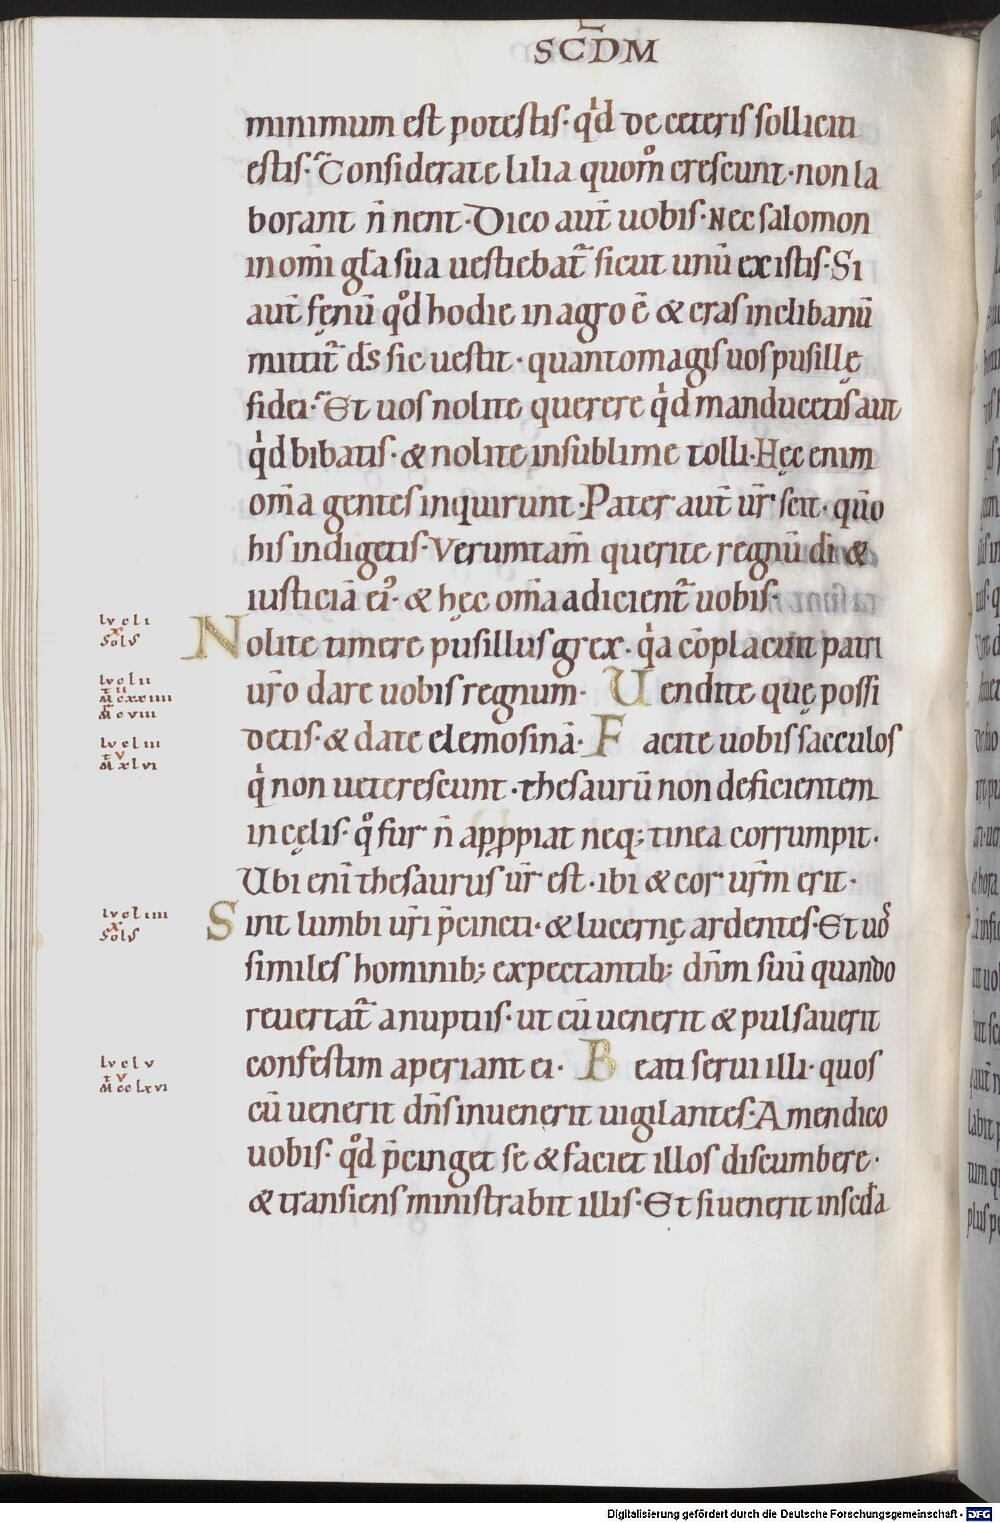 SCDM
minimum est potestis· qͥd de ceteris solliciti
estis·Considerate lilia quom̊ crescunt·non la
borant n̄ nent·Dico aut̄ uobis·Nec salomon
in om̄i gl̄a sua uestiebat᷑ sicut unū ex istis·Si
aut̄ fęnū qͦd hodie in agro ē & cras in clibanū
mittit᷑ d̄s sic uestit·quanto magis uos pusillę
fidei·Et uos nolite querere qͥd manducetis aut
qͥd bibatis·& nolite in sublime tolli·Hęc enim
om̄a gentes inquirunt·Pater aut̄ ur̄ scit·quō
his indigetis·Verumtam̄ querite regnū dī &
iusticiā ei᾿·& hęc om̄a adicient᷑ uobis·
Nolite timere pusillus grex·qͥa cōplacuit patri
ur̄o dare uobis regnum·Uendite quę possi
detis·& date elemosinā·Facite uobis sacculos
qͥ non ueterescunt·thesaurū non deficientem
in cęlis·qͦ fur n̄ appropiat neq; tinea corrumpit·
Ubi enī thesaurus ur̄ est·ibi & cor ur̄m erit·
Sint lumbi ur̄i p̄cincti·& lucernę ardentes·Et uos
similes hominib; expectantib; dn̄m suū quando
reuertat᷑ a nuptiis·ut cū uenerit & pulsauerit
confestim aperiant ei·Beati serui illi·quos
cū uenerit dn̄s inuenerit uigilantes·Amen dico
uobis·qͦd p̄cinget se & faciet illos discumbere·
& transiens ministrabit illis·Et si uenerit in scd̄a
lv cl i
x
Solv
lv cl ii
t ii
M cxxiiii
M cviii
lv cl iii
t v
M xlvi
lv cl iiii
x
Solv
lv cl v
t v
M cclxvi
Digitalisierung gefördert durch die Deutsche Forschungsgemeinschaft - DFG